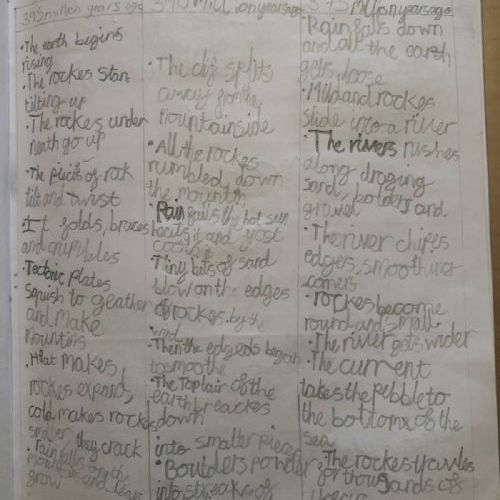 395 million years ago
• The earth begins
rising
• The rockes start
tilting up
• The rockes under
neath go up
• The pieces of rock
tilt and twist
It folds, braces
and crumbles
• Tectonic Plates
Squish to geather
and make
mountins
• Heat makes
rockes expand,
cold makes rockes
smaller they crack
• Rain falls on the
mountin and
grow
million years ago
• The clif splits
away from the
mountainside
• All the rockes
rumbled down
the mountin
• Rain falls the hot sun
it and
• Tiny bits of sand
blow on the edges
of rockes. by the
wind
• Then the edgeds begin
to smoothe
• The Top lair of the
earth breackes
down
into smaller pieces
• Boulders
into streaks of
million years ago
• Rain falls down
and all the earth
gets loose
• Mud and rockes
slide into a river
• The rivers rushes
along
sand, bolders and
gravel
• The river chipes
edges, smoothing
corners
• rockes become
round and small
• The river gets wider
• The current
takes the pebble to
the bottom of the
sea
• The rockes
for thousands of